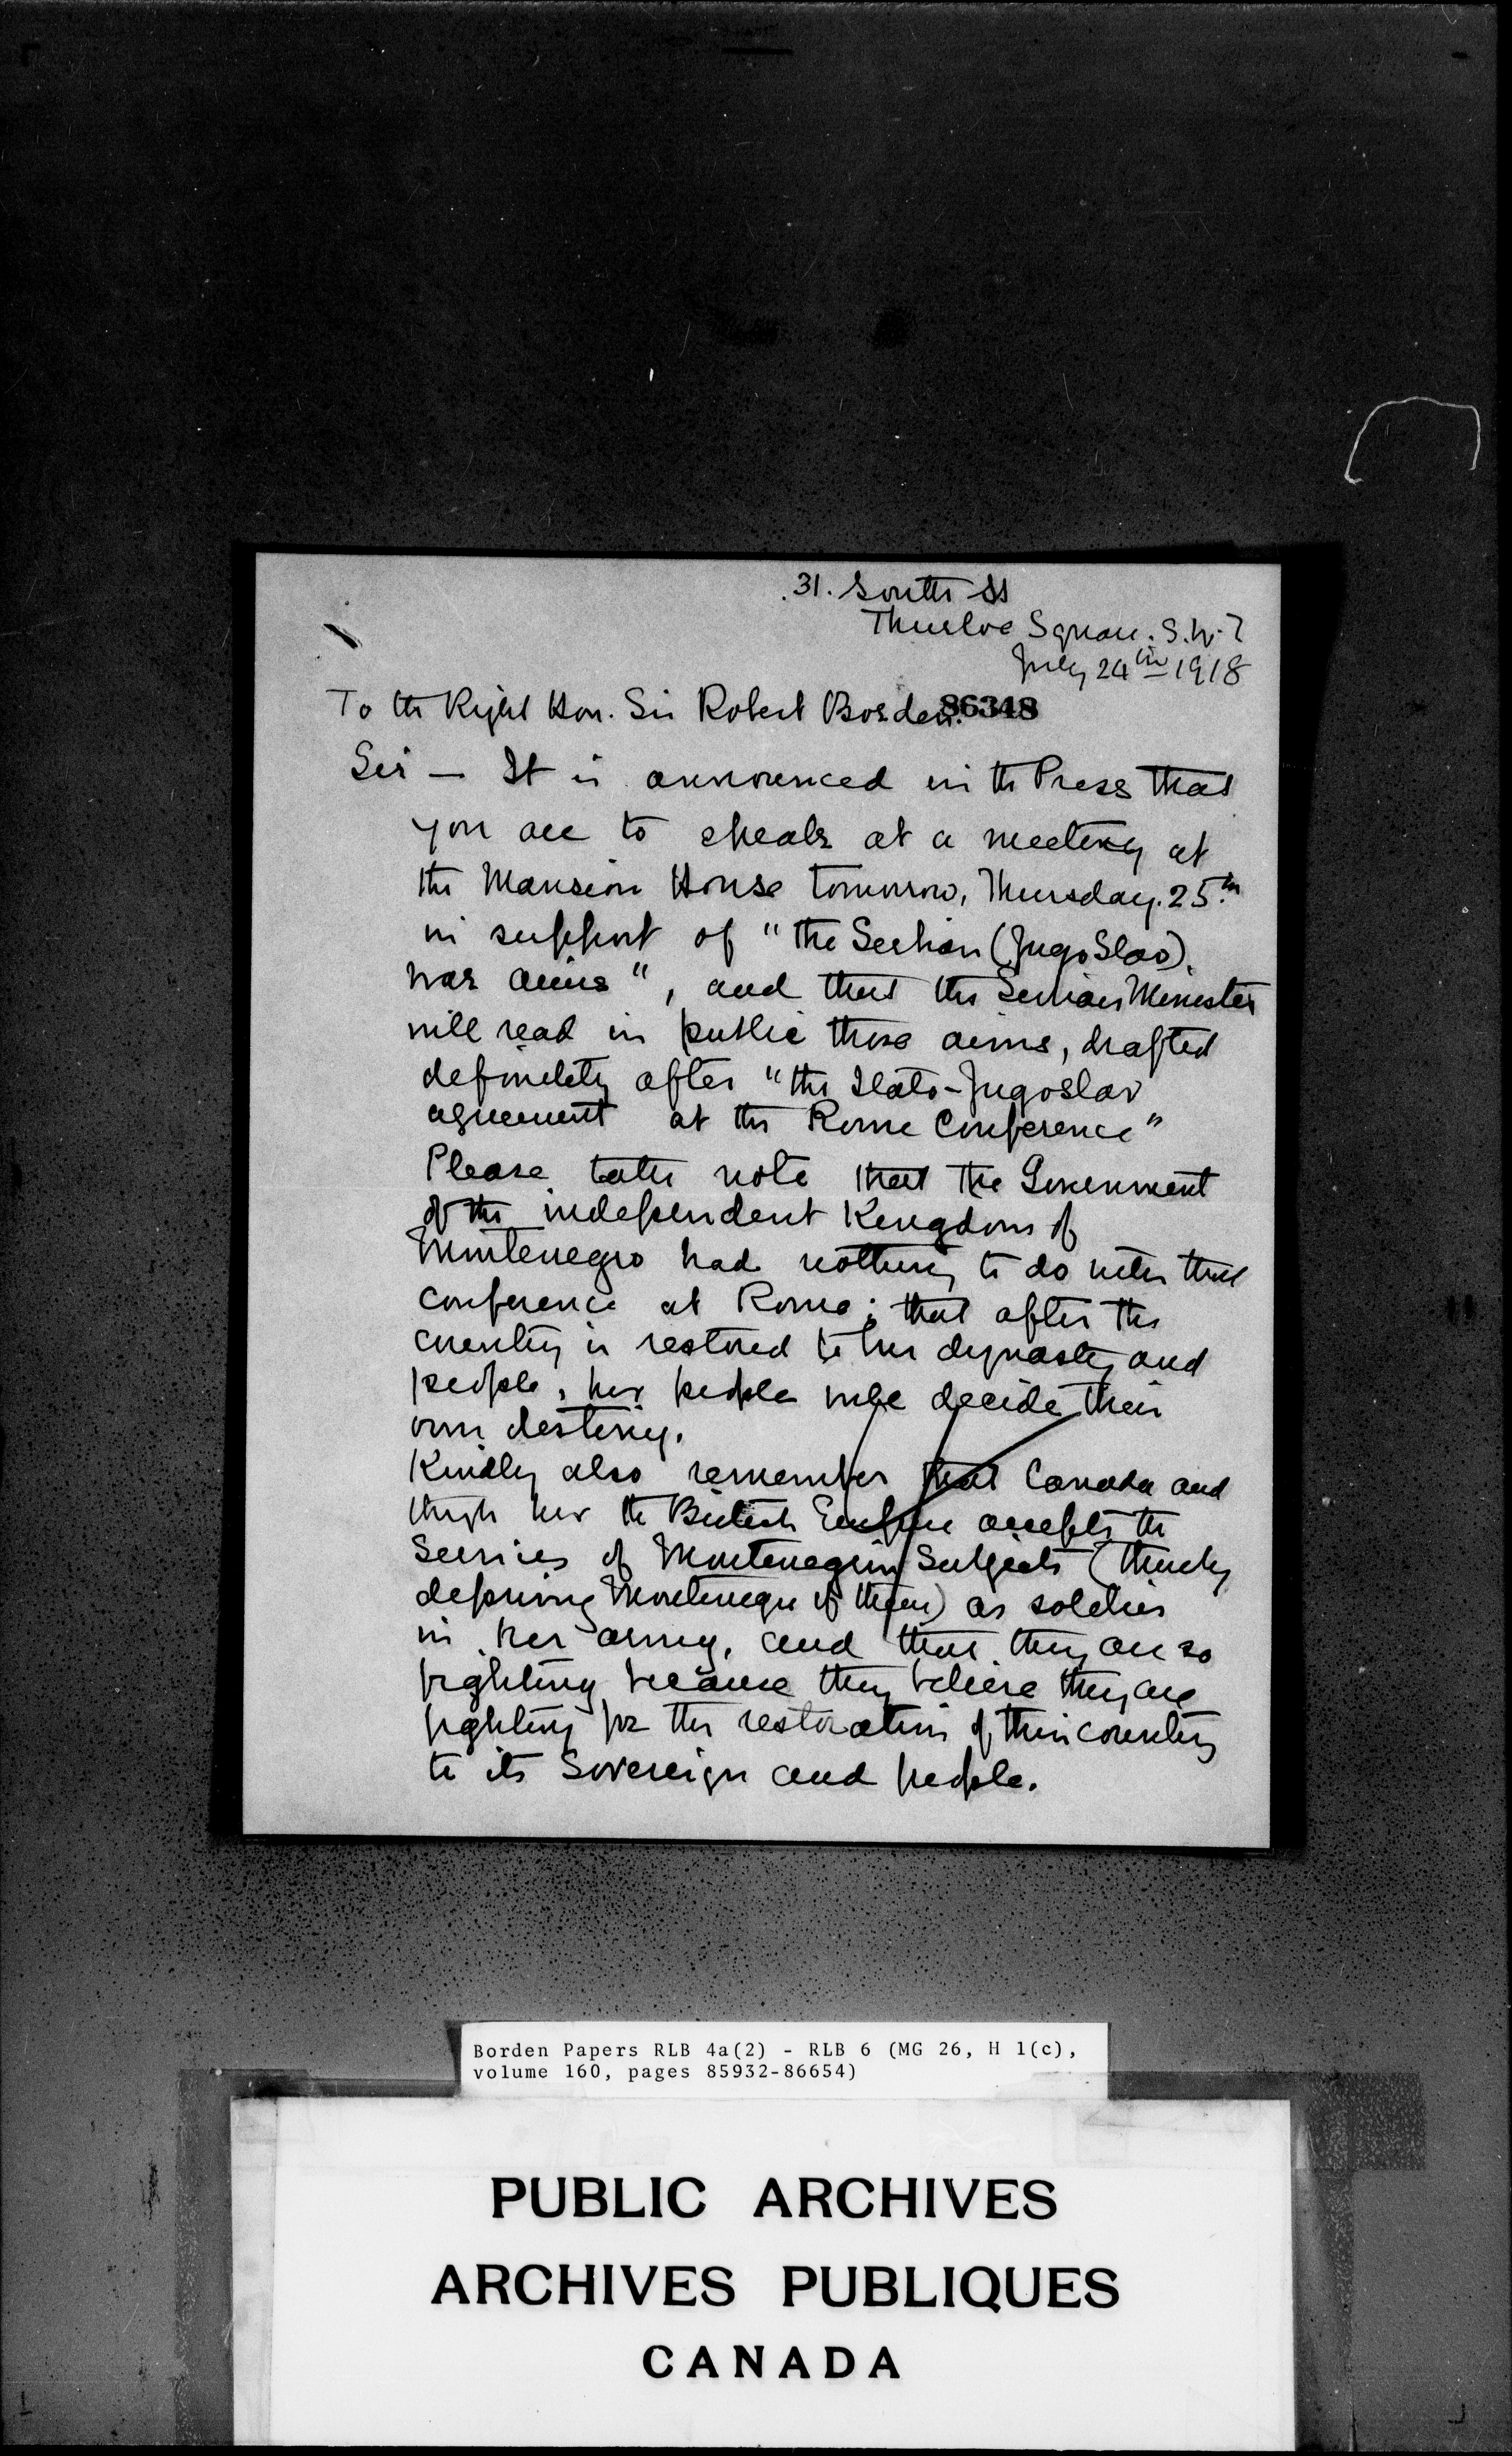 31. South St
Thurloe Square. S.W.7
July 24th 1918
To the Right Hon. Sir Robert Borden.
86348
Sir — It is announced in the Press that
you are to speak at a meeting at
the Mansion House tomorrow, Thursday. 25th
in support of "the Serbian (Jugo Slav)
war aims", and that the Serbian Minister
will read in public those aims, drafted
definitely after "the Italo-Jugoslav
agreement at the Rome Conference"
Please take note that the Government
of the independent Kingdom of
Montenegro had nothing to do with that
conference at Rome; that after the
country is restored to her dynasty and
people, her people will decide their
own destiny.
Kindly also remember that Canada and
thro her the British Empire accepts the
services of Montenegrin subjects (thereby
depriving Montenegro of them) as soldiers
in her army, and that they are so
fighting because they believe they are
fighting for the restoration of their country
to its Sovereign and people.
Borden Papers RLB 4a(2) - RLB 6 (MG 26, H 1(c),
volume 160, pages 85932-86654)
PUBLIC ARCHIVES
ARCHIVES PUBLIQUES
CANADA